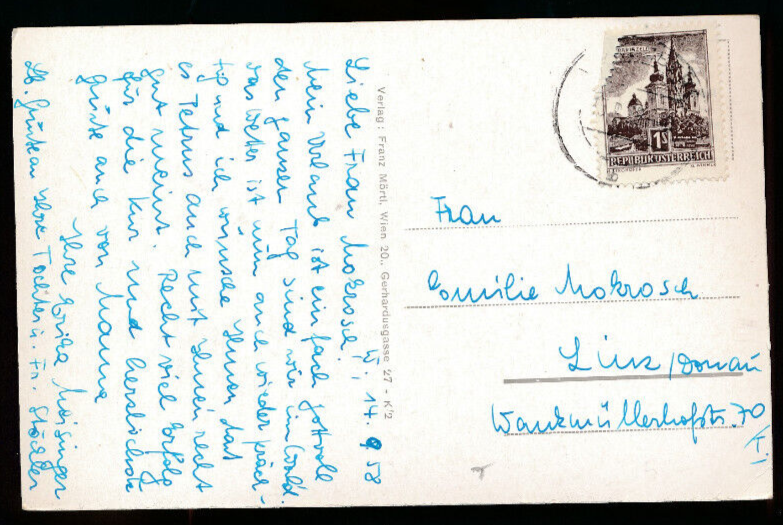 W., 14. 9. 58
Liebe Frau Mokrosch!
Mein Urlaub ist einfach prachtvoll
den ganzen Tag sind wir im Wald.
Das Wetter ist nun auch wieder präch-
tig und ich wünsche Ihnen, daß
es Petrus auch mit Ihnen recht
gut meint. Recht viel Erfolg
für die Kur und herzlichste
Grüße auch von Mama
Ihre Erika
Lb. Grüße an Ihre Tochter u. Fr.
Verlag: Franz Mörtl, Wien 20., Gerhardusgasse 27 - K'2
1S
REPUBLIK ÖSTERREICH
Frau
Emilie Mokrosch
Linz/Donau
Wankmüllerhofstr. 70